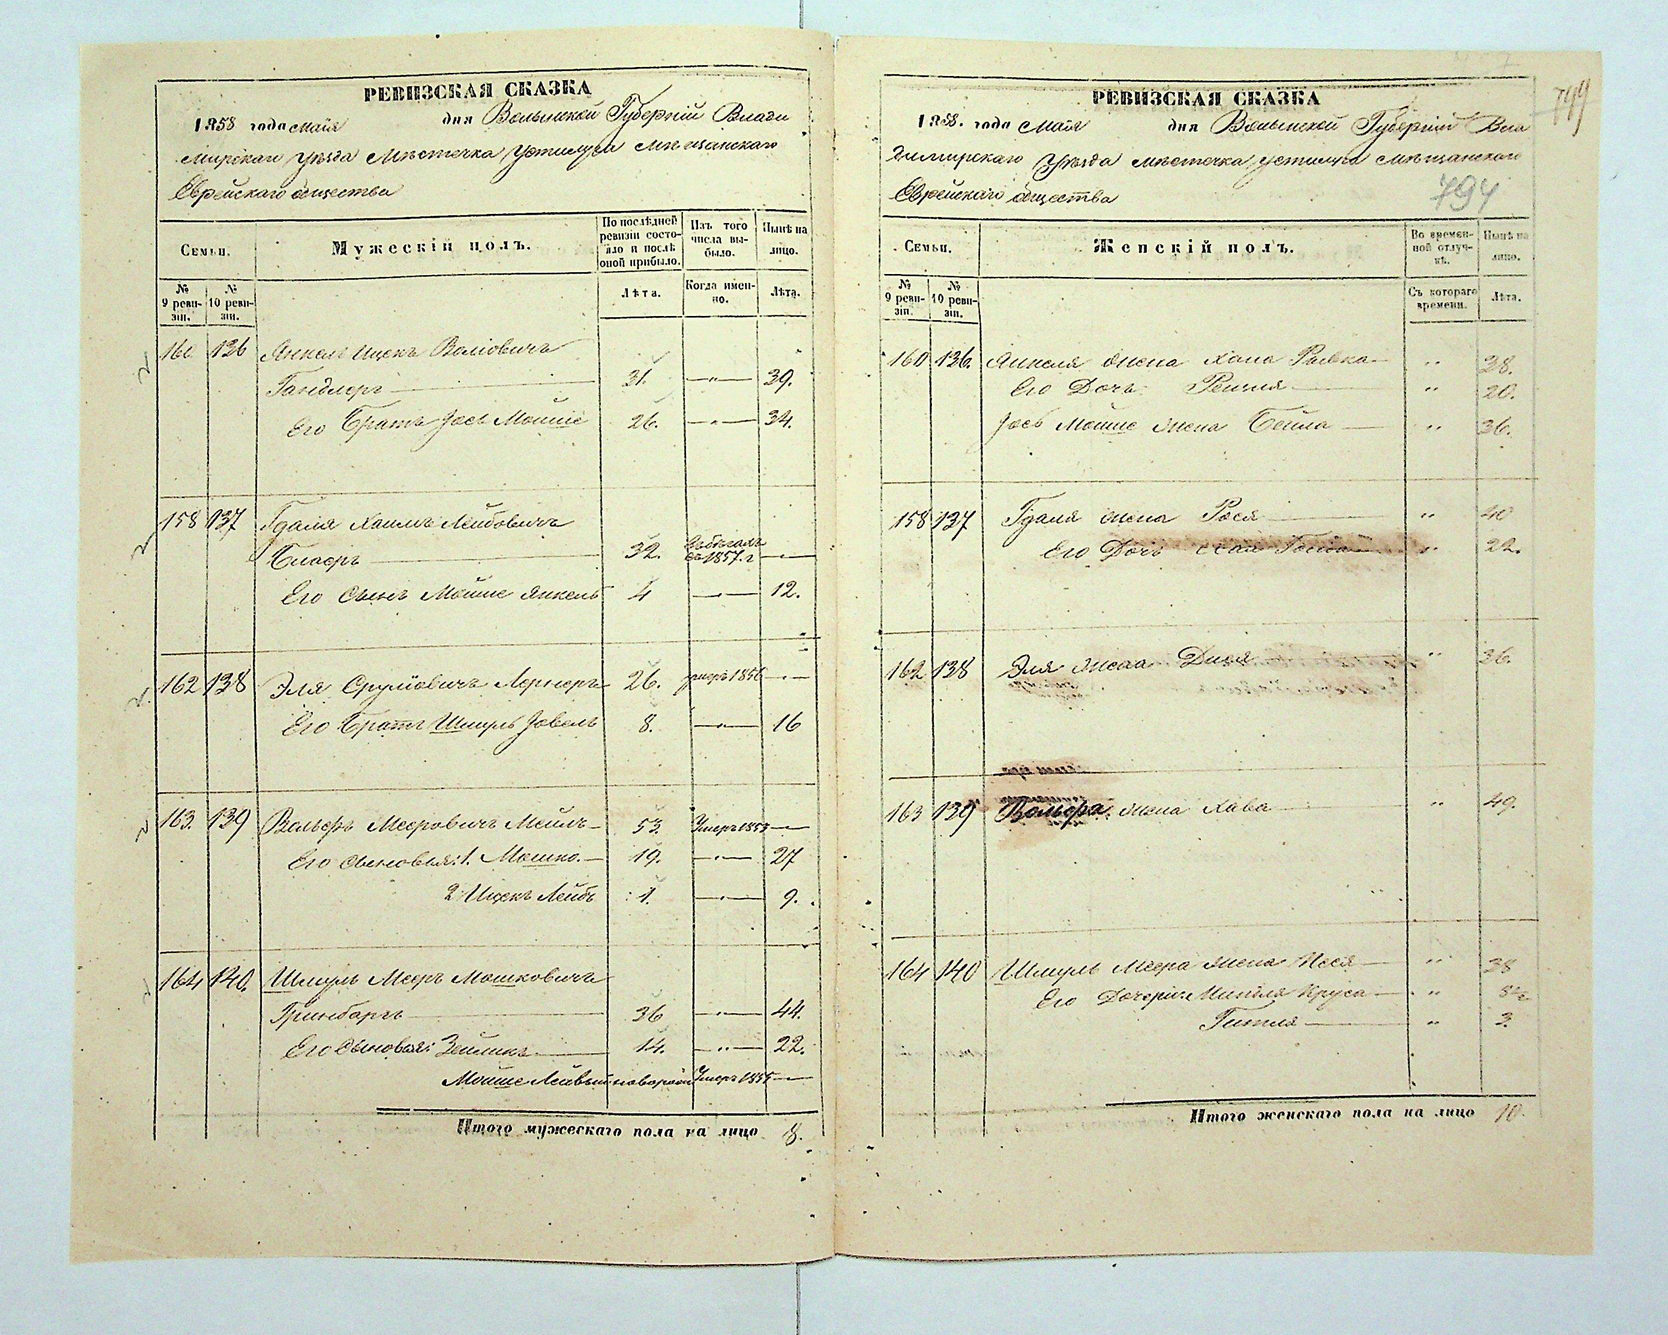 РЕВИЗСКАЯ СКАЗКА
1858 года Майя дня Волынской Губерній Влади
мирскаго уѣзда мѣстечка Устилуга мѣщанскаго
Еврейскаго общества
Семьи.
Мужескій полъ.
По послѣдней ревизіи состояло и послѣ оной прибыло.
Изъ того числа выбыло.
Нынѣ на лицо.
№ 9 ревизіи.
№ 10 ревизіи.
Лѣта.
Когда именно.
Лѣта.
160 136 Янкель Ицекъ Волфовичъ
Гандлеръ 31. — " — 39.
Его Братъ Іось Мошше 26. — " — 34.
158 137 Гдаля Хаимъ Лейбовичъ
32. 1857. г — " —
Его сынъ Мошше Янкель 4 — " — 12.
162 138 Эля Срулiовичъ Лернеръ 26. умеръ 1856 — " —
Его Братъ Шмуль Іовель 8. — " — 16
163. 139 Вольфъ Меэровичъ Мейлъ 53. Умеръ 1853 —
Его сыновья: 1. Мошко. — 19. — " — 27
2 Ицекъ Лейбъ 1. — " — 9.
164 140. Шмуль Мееръ Мошковичъ
Гринбаръ 36 — " — 44.
Его сыновья: Зейликъ 14. — " — 22.
Мошше Лейвый новорож Умеръ 1855 —
Итого мужескаго пола на лицо 8.
РЕВИЗСКАЯ СКАЗКА
1858. года Майя дня Волынской Губерній Вла
димирскаго уѣзда мѣстечка Устилуга мѣщанскаго
Еврейскаго общества
799
794
Семьи.
Женскій полъ.
Во временной отлучкѣ.
Нынѣ на лицо.
№ 9 ревизіи.
№ 10 ревизіи.
Съ котораго времени.
Лѣта.
160 136. Янкеля жена Хана Ривка " 38.
Его Дочь Рейзля " 20.
Іось Мошше жена Бейла " 36.
158 137 Гдаля жена Рося " 40
Его Дочь Хая " 22.
162 138 Эля жена Двося " 36.
163 139 Вольфа жена Хава " 49.
164 140 Шмуль Меера жена Неся " 38
Его Дочери: Миндля Круса "
Гитля " 3.
Итого женскаго пола на лицо 10.